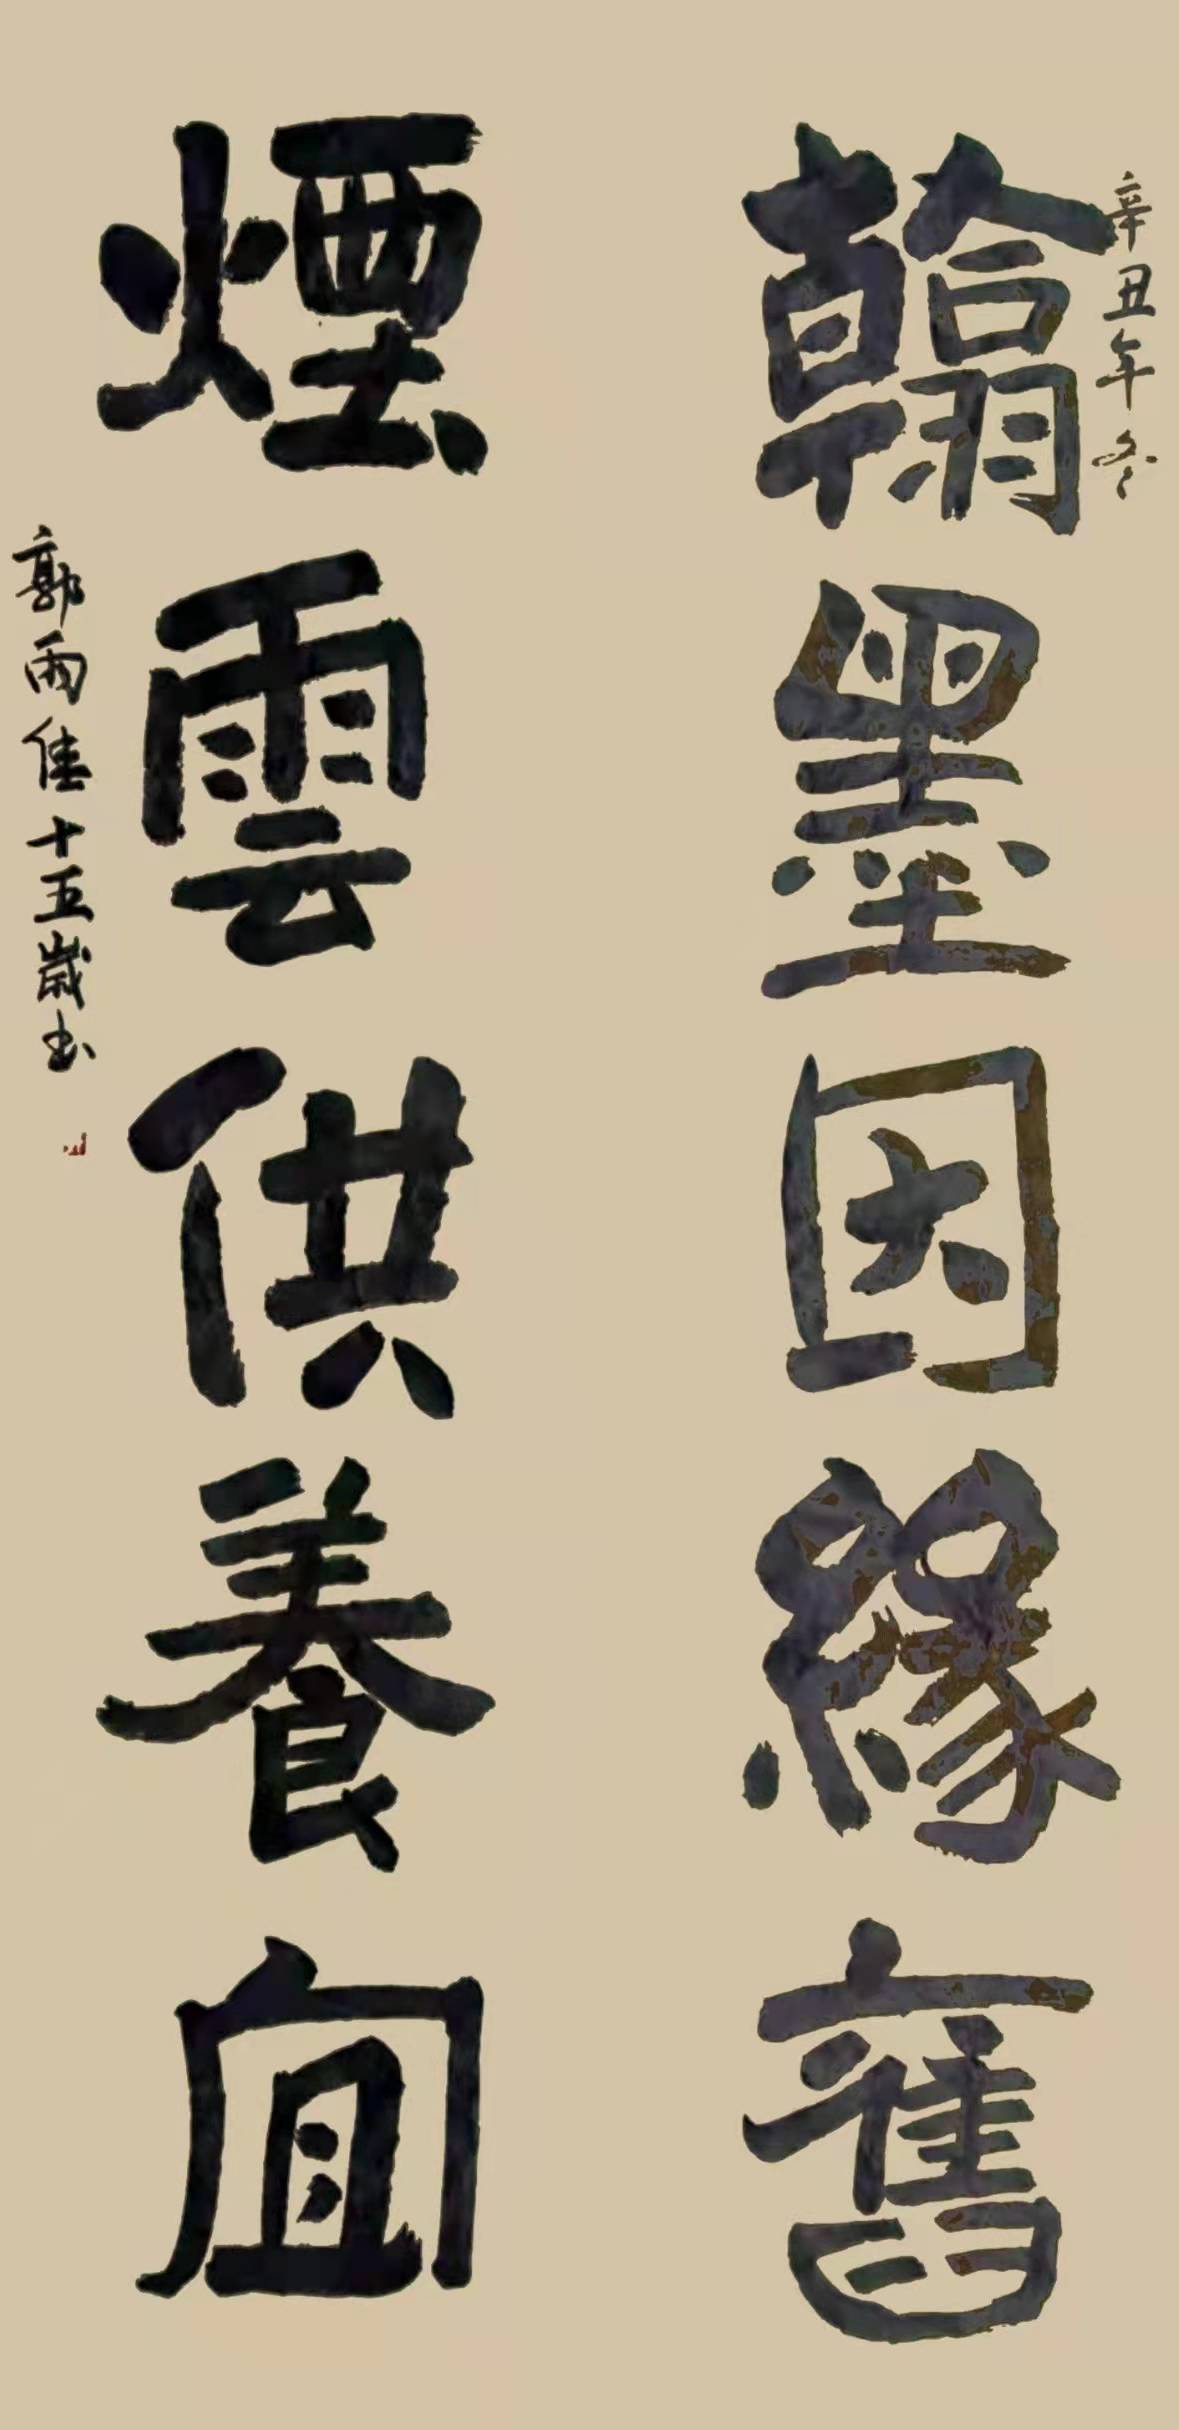 辛丑年冬
翰墨因緣舊
煙雲供養宜
郭雨佳十五歲書